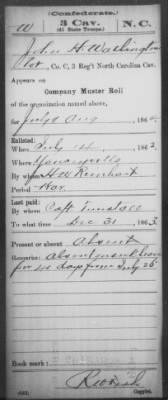 W
Confederate.
3 Cav.
(41 State Troops.)
N. C.
John H Washington
Pvt, Co. C, 3 Reg't North Carolina Cav.
Company Muster Roll
of the organization named above,
for July & Aug, 186
Enlisted:
When July 14, 1862
Where Yanceyville
By whom H W Reinhart
Period War
Last paid:
By whom Capt Tunstall
To what time Dec 31, 1863
Present or absent Absent
Remarks: Absent on sick leave
for 40 days from July 25
Book mark:
(642)
Copyist.